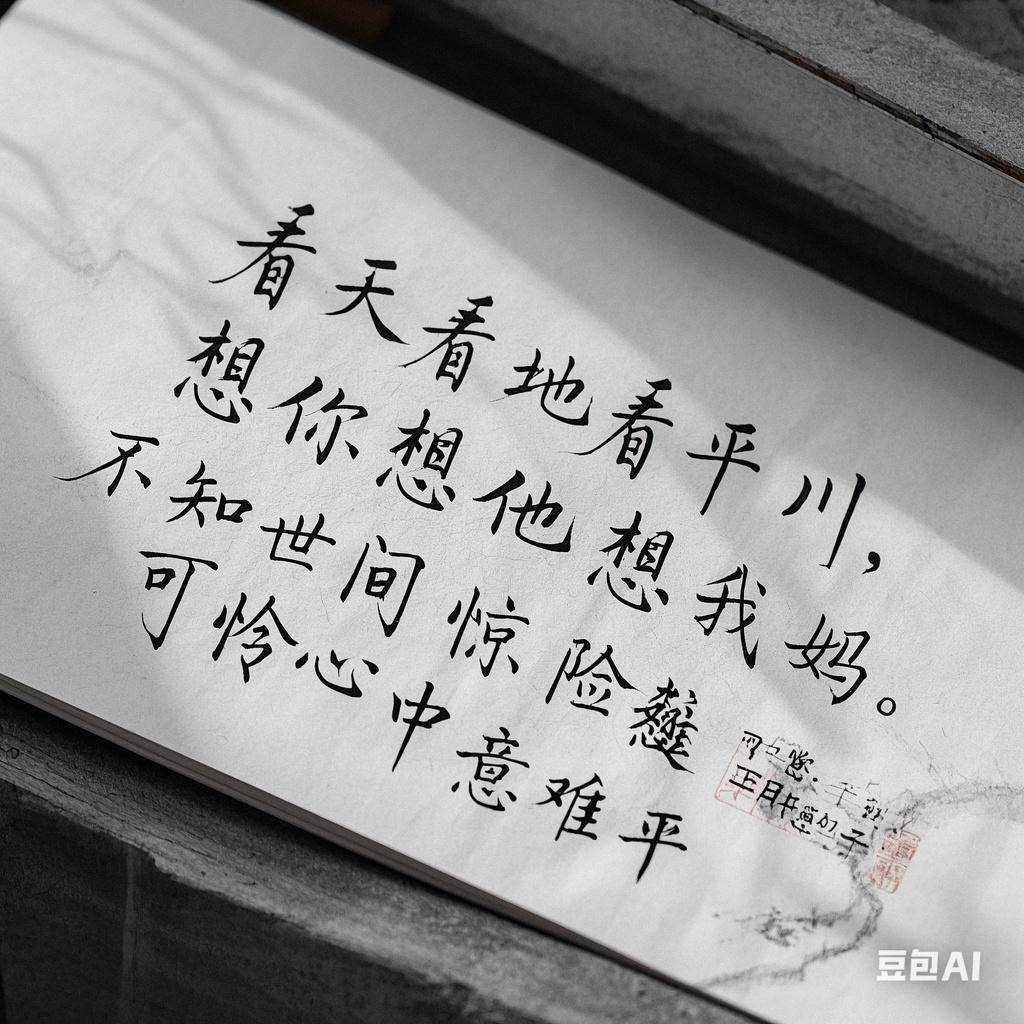 看天看地看平川，
想你想他想我妈。
不知世间惊险
可怜心中意难平
正月
子
豆包AI